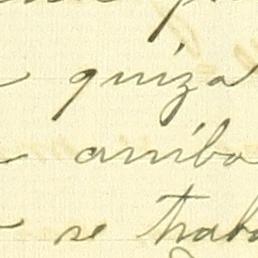 quiza
arriba
se traba